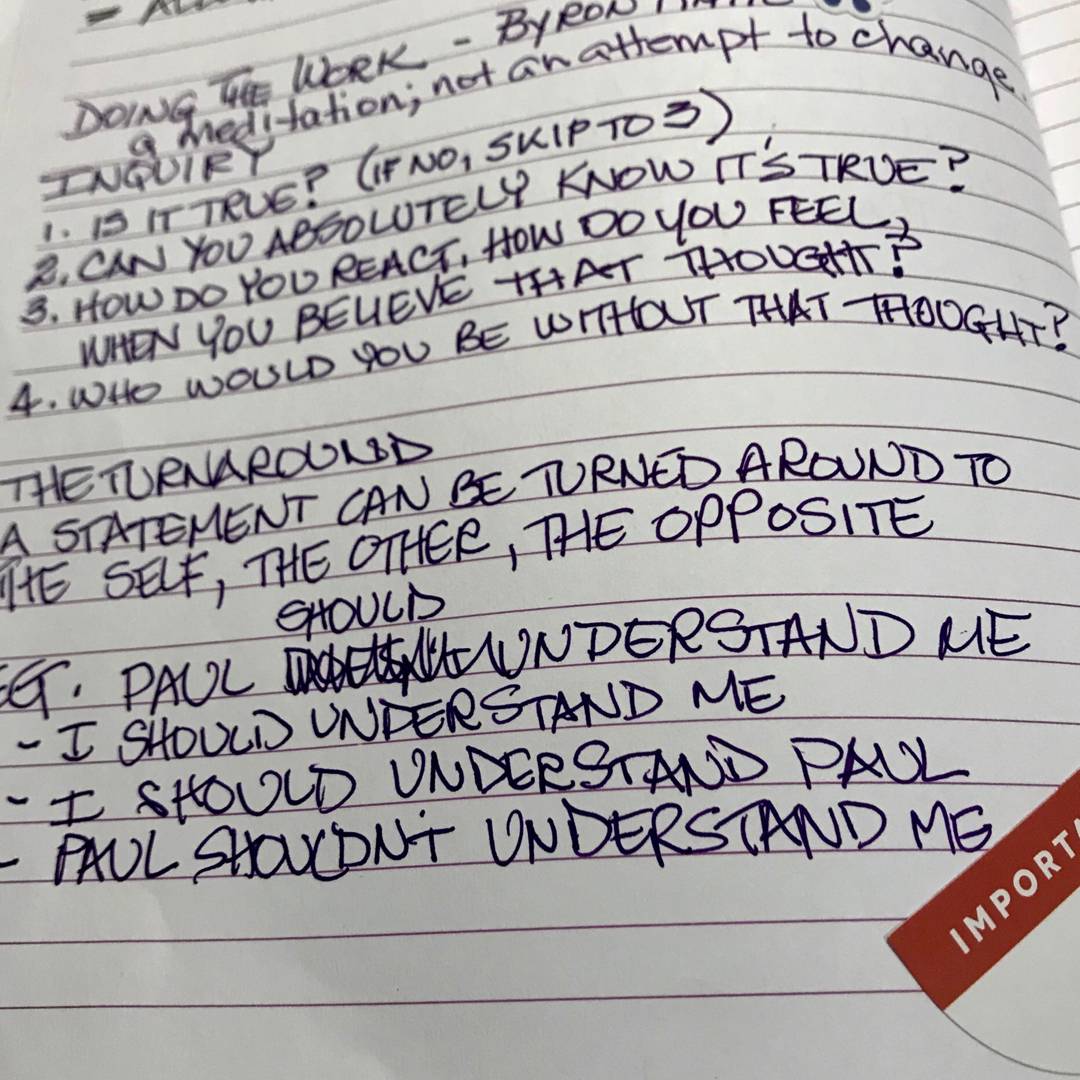 DOING THE WORK - BYRON
a meditation; not an attempt to change.
INQUIRY
1. IS IT TRUE? (IF NO, SKIP TO 3)
2. CAN YOU ABSOLUTELY KNOW IT'S TRUE?
3. HOW DO YOU REACT, HOW DO YOU FEEL,
WHEN YOU BELIEVE THAT THOUGHT?
4. WHO WOULD YOU BE WITHOUT THAT THOUGHT?
THE TURNAROUND
A STATEMENT CAN BE TURNED AROUND TO
THE SELF, THE OTHER, THE OPPOSITE
SHOULD
EG. PAUL UNDERSTAND ME
- I SHOULD UNDERSTAND ME
- I SHOULD UNDERSTAND PAUL
- PAUL SHOULDN'T UNDERSTAND ME
IMPORTA